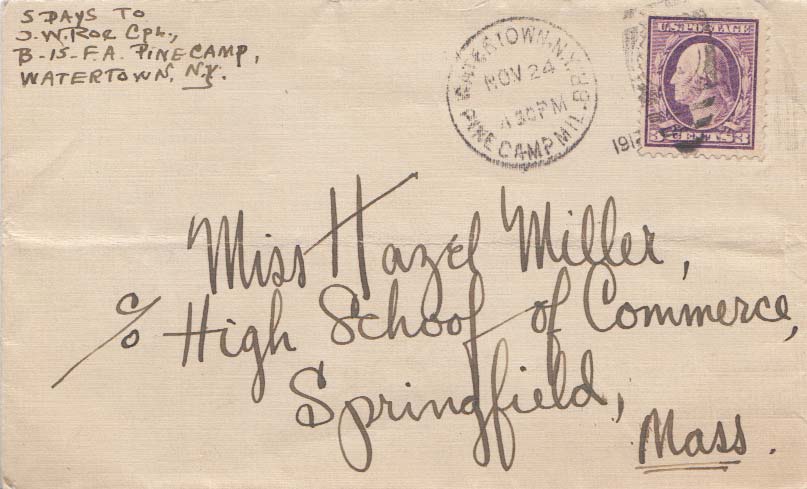 5 DAYS TO
J.W. Roe Cpt.,
B-15-F.A. PINE CAMP,
WATERTOWN, N.Y.
WATERTOWN, N.Y. BR
NOV 24
4 30 PM
PINE CAMP MIL.
191
U.S. POSTAGE
3 CENTS 3
Miss Hazel Miller,
c/o High School of Commerce,
Springfield,
Mass.